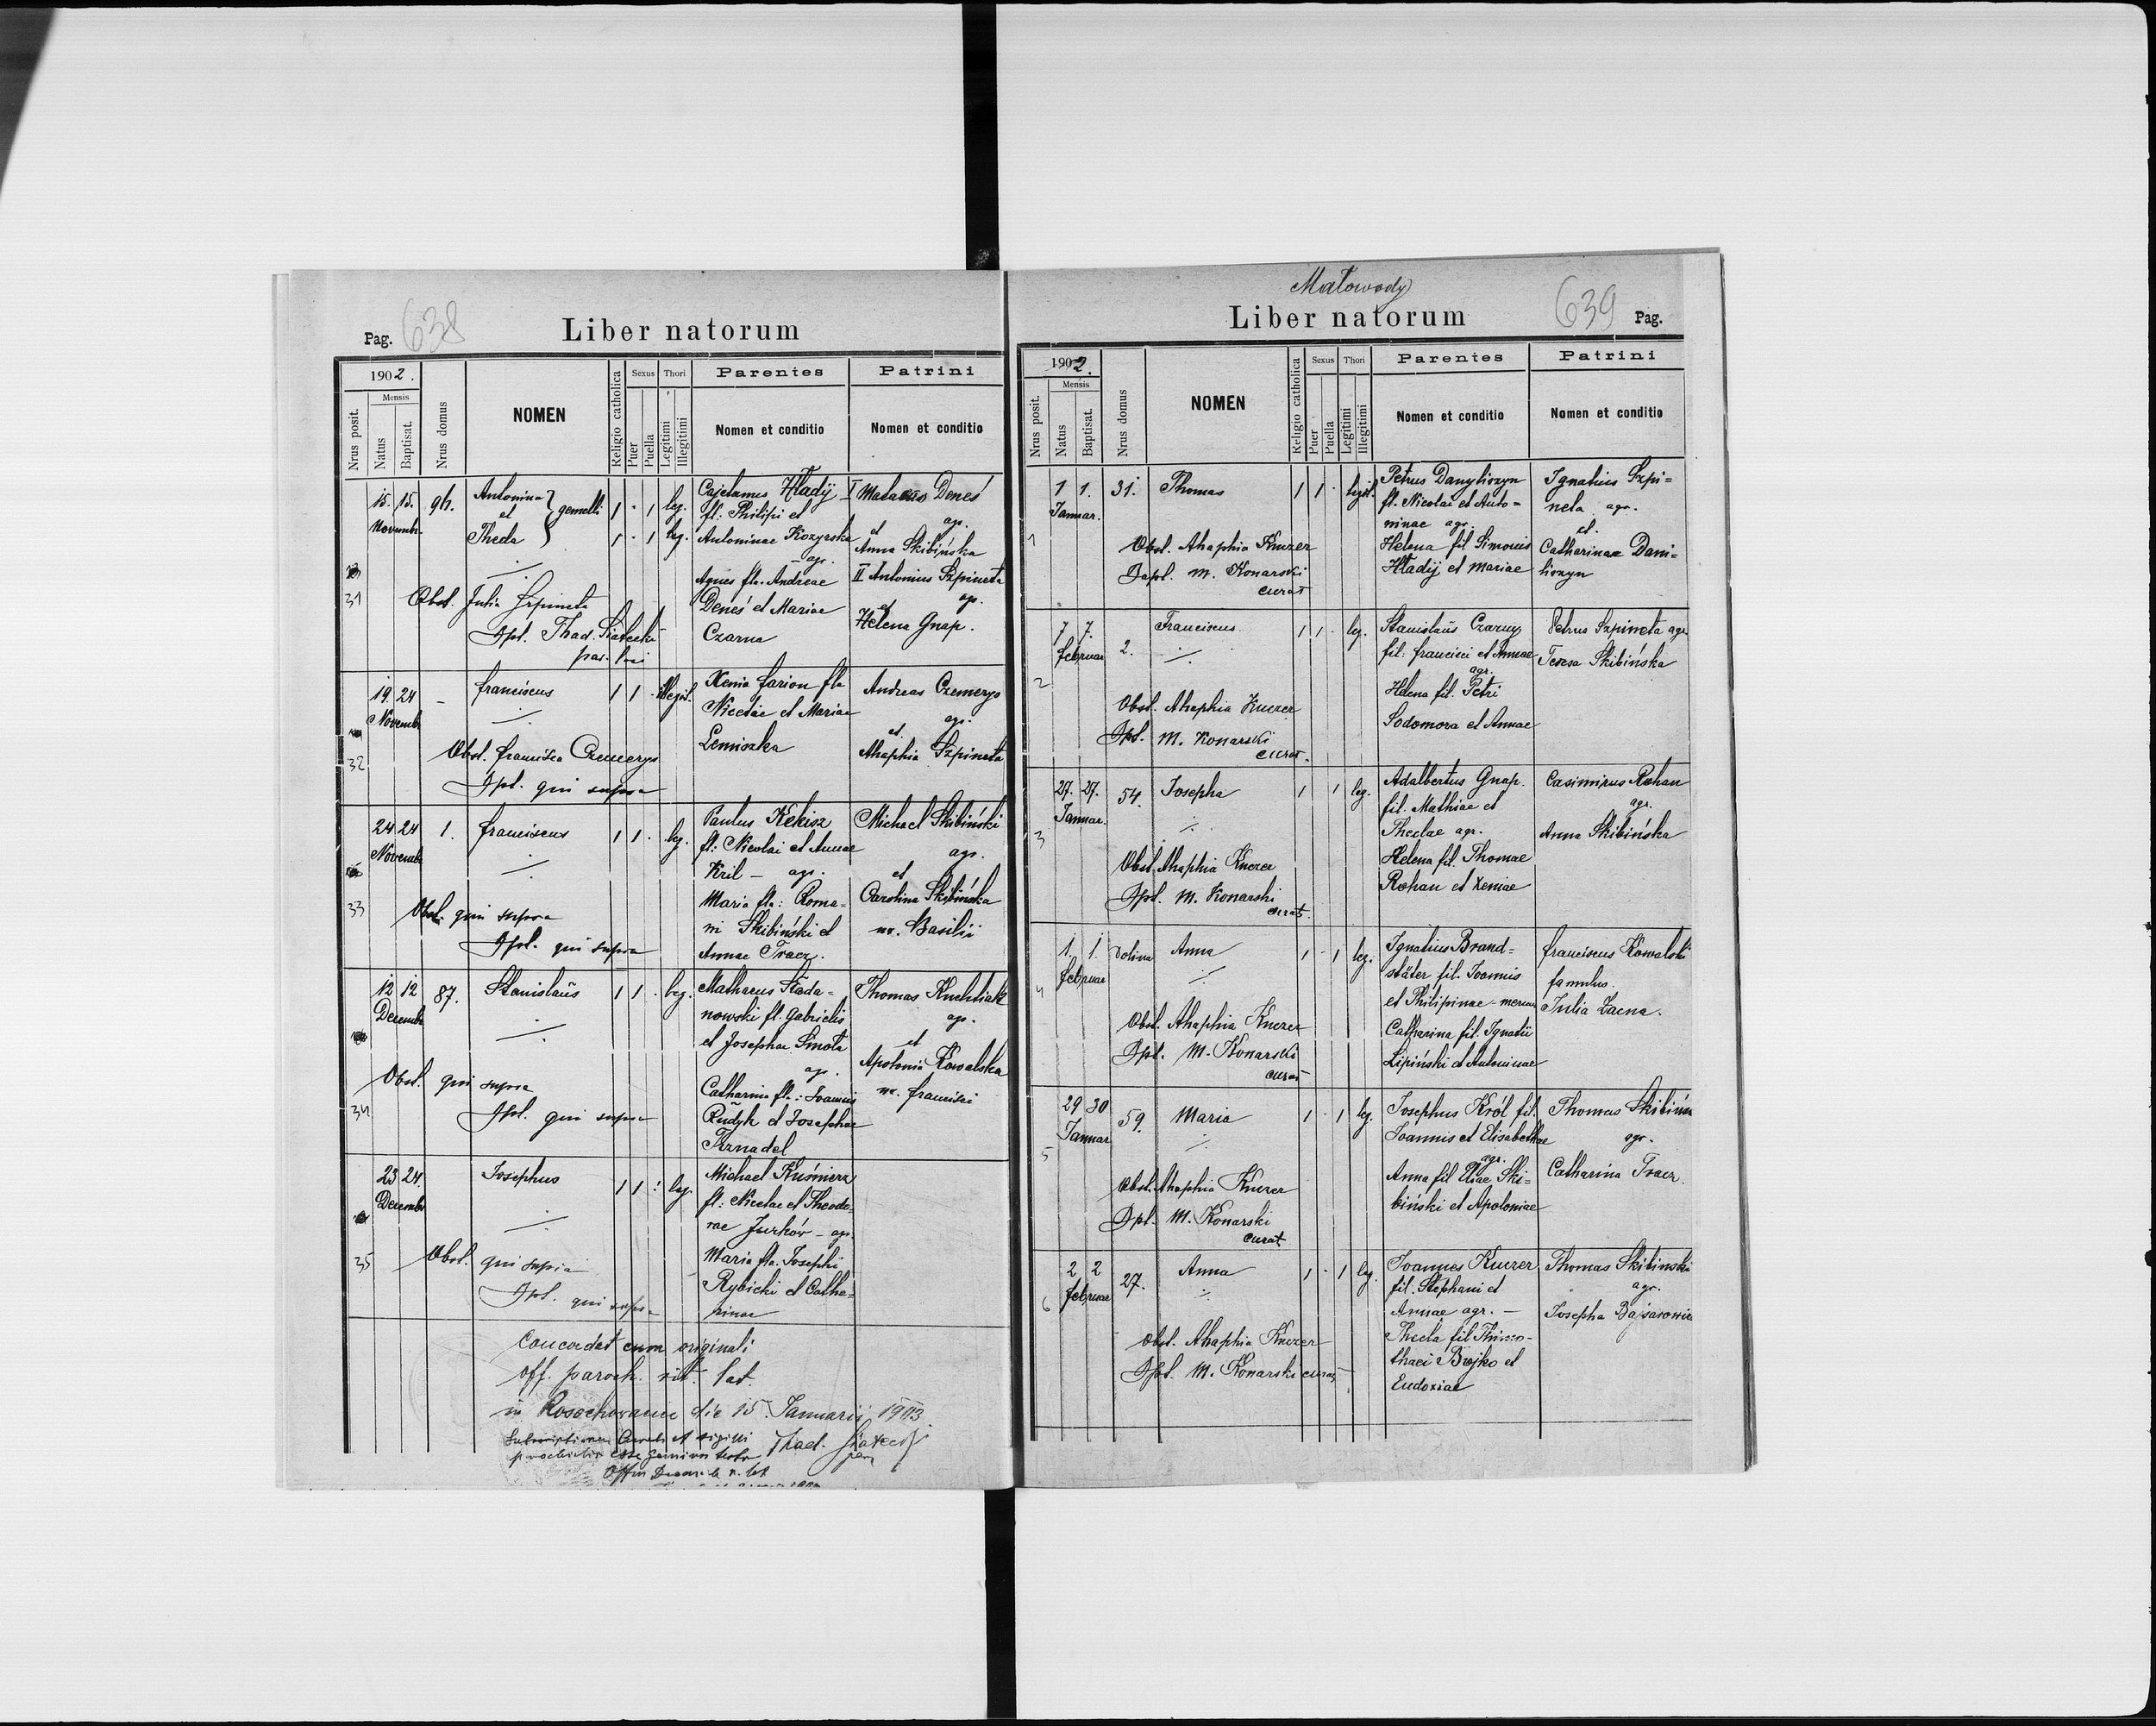 Pag. 638
Liber natorum
1902.
Mensis
Nrus posit.
Natus
Baptisat.
Nrus domus
NOMEN
Religio catholica
Sexus
Puer
Puella
Thori
Legitimi
Illegitimi
Parentes
Nomen et conditio
Patrini
Nomen et conditio
31
15. 15.
Novembr.
94.
Antonina
et
Theda
gemelli
1 · 1 leg.
1 · 1 leg.
Obst. Julia Szpineta
Bpt. Thad. Siatecki
par. loci
Cajetanus Hladij
fl: Philipi et
Antoninae Kozyrska
- agr.
Agnes fla. Andreae
Deneś et Mariae
Czarna
I Deneś
et agr.
Anna Skibińska
II Antonius Szpineta
et agr.
Helena Gnap.
32
19. 24
Novembr
-
Franciscus
1 1 · Illegit.
Obst. Francisca Czemerys
Bpt. qui supra
Xenia Farion fla
Nicetae et Mariae
Lemiszka
Andreas Czemerys
agr.
et
Ahaphia Szpineta
33
24 24
Novembr
1.
Franciscus
1 1 · leg.
Obst. qui supra
Bpt. qui supra
Paulus Kekisz
fl: Nicolai et Annae
Kril - agr.
Maria fla: Roma-
ni Skibiński et
Annae Tracz.
Michael Skibiński
agr.
et
Carolina Skibińska
ux. Basilii
34
12 12
Decembr
87.
Stanislaus
1 1 · leg.
Obst. qui supra
Bpt. qui supra
Mathaeus Stada-
nowski fl. Gabrielis
et Josephae Smota
agr.
Catharina fla: Joannis
Rudyk et Josephae
Trznadel
Thomas Kuchliak
agr.
et
Apolonia Kowalska
ux. Francisci
35
23 24.
Decembr
Josephus
1 1 : leg.
Obst. qui supra
Bpt. qui supra
Michael Kuśnierz
fl: Nicetae et Theodo-
rae Jurków - agr.
Maria fla. Josephi
Rybicki et Catha-
rinae
Concordat cum originali
Off. paroch. rit. lat.
in Rosochowaciec die 15. Januarii 1903.
Thad. Siatecki
Malowody
Liber natorum
639 Pag.
1902.
Mensis
Nrus posit.
Natus
Baptisat.
Nrus domus
NOMEN
Religio catholica
Sexus
Puer
Puella
Thori
Legitimi
Illegitimi
Parentes
Nomen et conditio
Patrini
Nomen et conditio
1
1 1.
Januar.
31.
Thomas
1 1 · legit.
Obst. Ahaphia Knezer
Bapt. M. Konarski
curat
Petrus Danyliozyn
fl. Nicolai et Anto-
ninae agr.
Helena fil Simonis
Hladij et Mariae
Ignatius Szpi-
neta agr.
et
Catharinae Dani-
liozyn
2
7 7.
Februar
2.
Franciscus
1 1 · leg.
Obst. Ahaphia Knezer
Bpt. M. Konarski
curat.
Stanislaus Czarny
fil: Francisci et Annae
agr.
Helena fil. Petri
Sodomora et Annae
Petrus Szpineta agr.
Teresa Skibińska
3
27. 27.
Januar.
54.
Josepha
1 1 leg.
Obst. Ahaphia Knezer
Bpt. M. Konarski
curat.
Adalbertus Gnap.
fil. Mathiae et
Theclae agr.
Helena fil. Thomae
Rohan et Xeniae
Casimirus Rohan
agr.
Anna Skibińska
4
1. 1.
Februar
Dolina
Anna
1 · 1 leg.
Obst. Ahaphia Knezer
Bpt. M. Konarski
curat
Ignatius Brand-
stäter fil. Joannis
et Philipinae -
Catharina fil. Ignatii
Lipiński et Antoninae
Franciscus Kowalski
famulus.
Julia Zacna.
5
29 30
Januar
59.
Maria
1 · 1 leg.
Obst. Ahaphia Knezer
Bpt. M. Konarski
curat
Josephus Król fil.
Joannis et Elisabethae
agr.
Anna fil Eliae Ski-
biński et Apoloniae
Thomas Skibińs
agr.
Catharina Tracz.
6
2 2
Februar
27.
Anna
1 · 1 leg.
Obst. Ahaphia Knezer
Bpt. M. Konarski curat
Joannes Knezer
fil. Stephani et
Annae agr. -
Thecla fil Thimo-
thaei Brojko et
Eudoxiae
Thomas Skibinski
agr.
Josepha Bajsarowicz